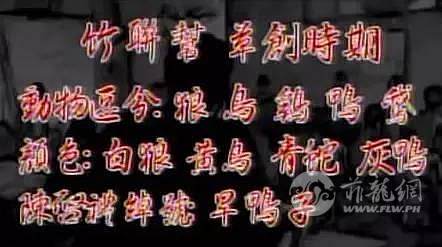 竹聯幫 草創時期
動物區分: 狼 鳥 鷄 鴨 鵞
顏色: 白狼 黃鳥 青蛇 灰鴨
陳啓禮綽號 旱鴨子
菲龍網
WWW.FLW.PH